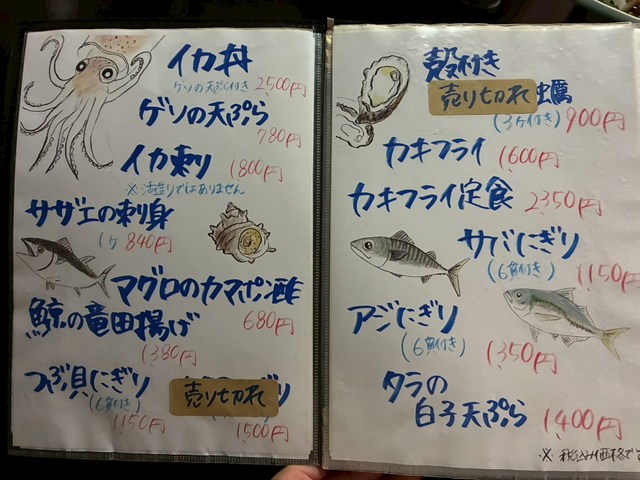 イカ丼
ゲソの天ぷら付き 2500円
ゲソの天ぷら
780円
イカ刺り 1800円
※活造りではありません
サザエの刺身
1ケ 840円
マグロのカマポン酢
680円
鯨の竜田揚げ
1380円
つぶ貝にぎり
(6貫付き)
1150円
売り切れ
ぎり
1500円
殻付き
売り切れ 牡蠣
(3ケ付き) 900円
カキフライ 1600円
カキフライ定食 2350円
サバにぎり
(6貫付き) 1150円
アジにぎり
(6貫付き) 1350円
タラの
白子天ぷら 1400円
※税込み価格で